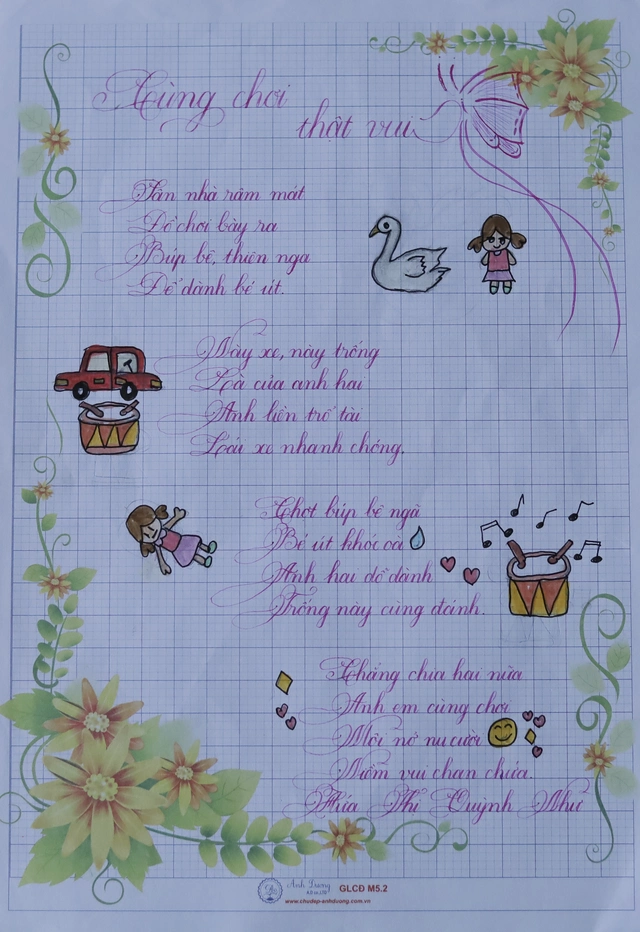 Cùng chơi
thật vui
Sân nhà râm mát
Đồ chơi bày ra
Búp bê, thiên nga
Để dành bé út.
Này xe, này trống
Là của anh hai
Anh liền trổ tài
Lái xe nhanh chóng.
Chợt búp bê ngã
Bé út khóc oà
Anh hai dỗ dành
Trống này cùng đánh.
Chẳng chia hai nữa
Anh em cùng chơi
Môi nở nụ cười
Niềm vui chan chứa.
Hứa Thị Quỳnh Như
Ánh Dương
GLCĐ M5.2
www.chudep-anhduong.com.vn